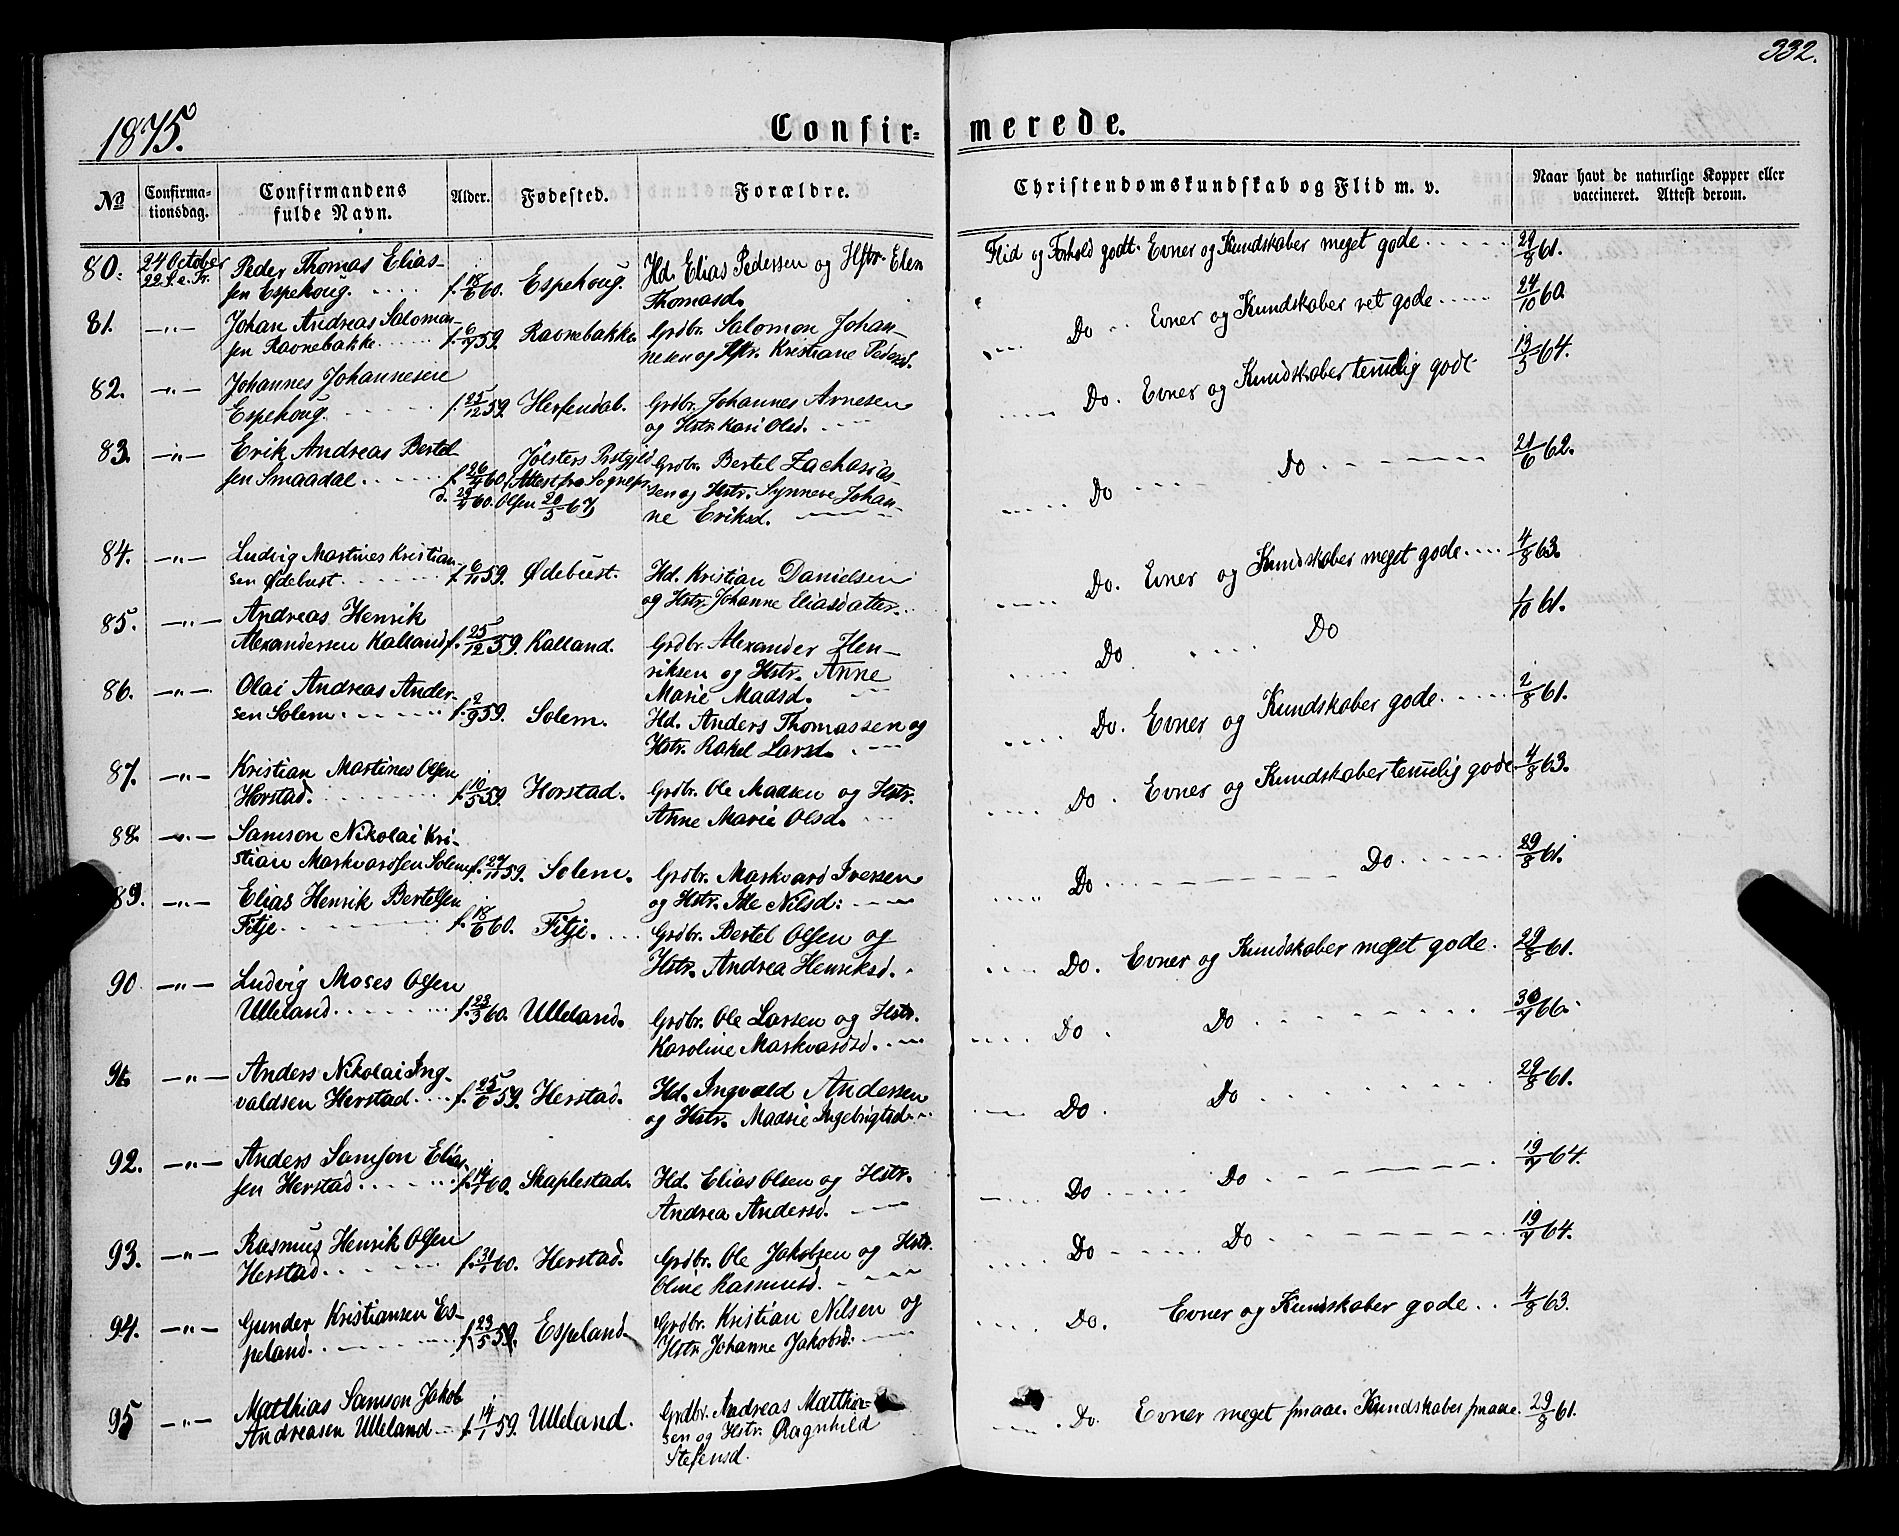 332.
1875.
Confir= merede.
No
Confirma-
tionsdag.
Confirmandens
fulde Navn.
Alder.
Fødested.
Forældre.
Christendomskundskab og Flid m. v.
Naar havt de naturlige Kopper eller
vaccineret. Attest derom.
80. 24 October Peder Thomas Elias- Hd. Elias Pedersen og Hstr. Elen Flid og Forhold godt. Evner og Kundskaber meget gode 29/8 61.
22. S. e. Tr. sen Espehoug. f. 18/6 60. Espehoug. Thomasd.
81. -"- Johan Andreas Salomon- Grdbr. Salomon Johan- Do Evner og Kundskaber ret gode 24/10 60.
sen Ravnebakke f. 6/7 59. Ravnebakke. nesen og Hstr. Kristiane Pedersd.
82. -"- Johannes Johannesen Grdbr. Johannes Arnesen Do. Evner og Kundskaber temelig gode 13/5 64.
Espehoug. f. 25/12 59. Herfendal. og Hstr. Kari Olsd.
83. -"- Erik Andreas Bertel- Jølsters Prstgjeld Grdbr. Bertel Zacharias- Do Do 21/6 62.
sen Smaadal. f. 26/4 60. (Attest fra Sognepr. sen og Hstr. Synneve Johan-
d. 29/4 60. Olsen 20/5 67) ne Eriksd.
84. -"- Ludvig Martines Kristian- Hd. Kristian Danielsen Do. Evner og Kundskaber meget gode 4/8 63.
sen Ødebust. f. 6/11 59. Ødebust. og Hstr. Johanne Eliasdatter.
85. -"- Andreas Henrik Grdbr. Alexander Hen- Do Do 1/10 61.
Alexandersen Kalland f. 25/12 59. Kalland. riksen og Hstr. Anne
Marie Madsd.
86. -"- Olai Andreas Ander- Hd. Anders Thomassen og Do. Evner og Kundskaber gode. 2/8 61.
sen Solem. f. 2/9 59. Solem. Hstr. Rakel Larsd.
87. -"- Kristian Martines Olsen Grdbr. Ole Madsen og Hstr. Do. Evner og Kundskaber temelig gode 4/8 63.
Horstad. f. 10/5 59. Horstad. Anne Marie Olsd.
88. -"- Samson Nikolai Kri- Grdbr. Markvard Iversen Do Do 29/8 61.
stian Markvardsen Solem f. 27/11 59. Solem. og Hstr. Ale Nilsd:
89. -"- Elias Henrik Bertelsen Grdbr. Bertel Olsen og Do. Evner og Kundskaber meget gode. 29/8 61.
Fitje. f. 18/6 60. Fitje. Hstr. Andrea Henriksd.
90 -"- Ludvig Moses Olsen Grdbr. Ole Larsen og Hstr. Do. Do 30/7 66.
Ulleland. f. 23/3 60. Ulleland. Karoline Markvardsd.
91. -"- Anders Nikolai Ing- Hd. Ingvald Andersen Do. Do 29/8 61.
valdsen Herstad. f. 25/6 59. Herstad. og Hstr. Madsie Ingebrigtsd.
92. -"- Anders Samson Elias- Hd. Elias Olsen og Hstr. Do Do 19/7 64.
sen Herstad. f. 14/1 60. Skaplestad. Andrea Andersd.
93. -"- Rasmus Henrik Olsen Grdbr. Ole Jakobsen og Hstr. Do Do 19/7 64.
Herstad. f. 31/1 60. Herstad. Oline Rasmusd.
94. -"- Gunder Kristiansen Es- Grdbr. Kristian Nilsen og Do. Evner og Kundskaber gode. 4/8 63.
peland. f. 23/5 59. Espeland. Hstr. Johanne Jakobsd.
95 -"- Matthias Samson Jakob Grdbr. Andreas Matthia- Do. Evner meget smaae. Kundskaber smaae. 29/8 61.
Andreasen Ulleland f. 14/1 59. Ulleland. sen og Hstr. Ragnhild
Stefensd.